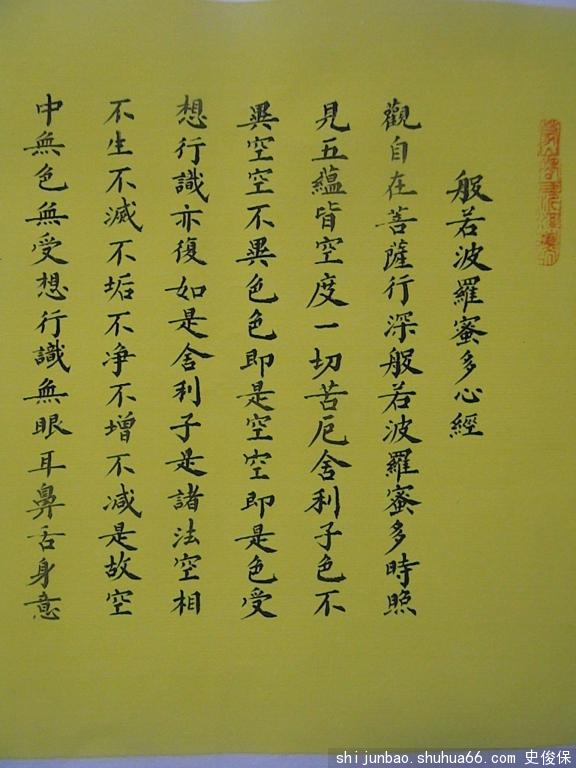 般若波羅蜜多心經
觀自在菩薩行深般若波羅蜜多時照
見五蘊皆空度一切苦厄舍利子色不
異空空不異色色即是空空即是色受
想行識亦復如是舍利子是諸法空相
不生不滅不垢不净不增不减是故空
中無色無受想行識無眼耳鼻舌身意
shijunbao.shuhua66.com 史俊保